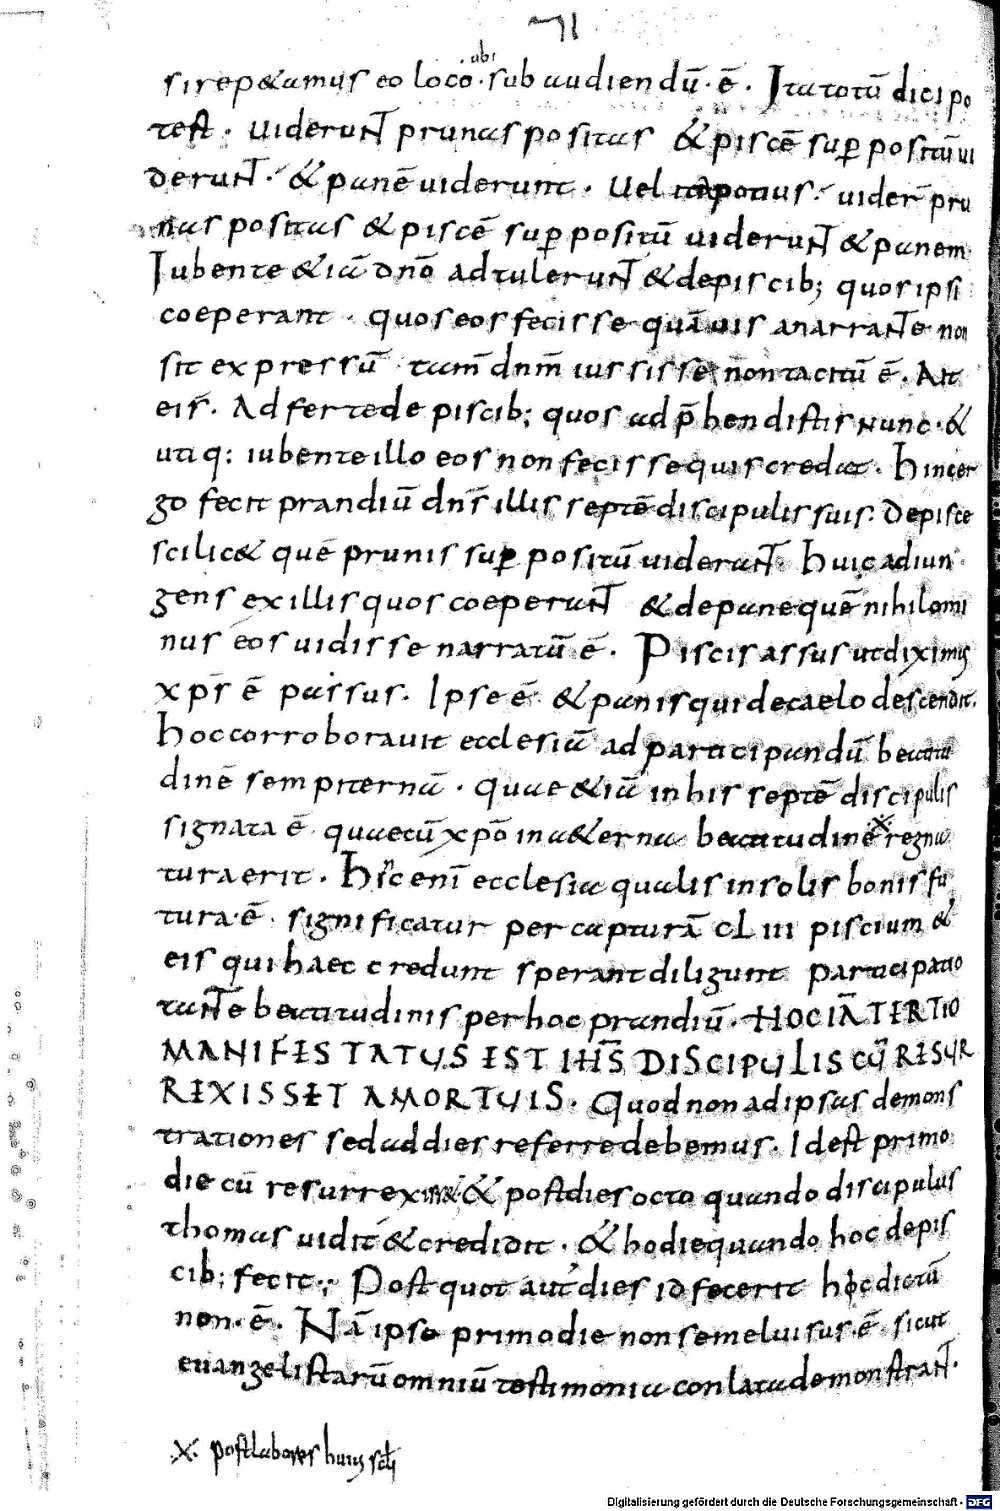 71
si repetamus eo loco · ubi sub audiendū · ē · Ita totū dici po
test · uiderunt prunas positas & piscē sup positū ui
derunt · & panē uiderunt · uel ita potius · uider̄ pru
nas positas & piscē sup positū uiderunt & panem
Iubente &iā dn̄o adtulerunt & de piscib; quos ipsi
coeperant · quos eos fecisse quāuis anarrante non
sit expressū tam̄ dn̄m iussisse n̄on tacitū ē · Ait
eis̄ · Ad ferte de piscib; quos adp̄hendistis nunc · &
utiq: iubente illo eos non fecisse quis credat · Hinc er
go fecit prandiū dn̄s illis septē discipulis suis · De pisce
scilic& quē prunis sup positū uiderunt · Huic adiun
gens ex illis quos coeperunt & de pane quē nihilomi
nus eos uidisse narratū ē · Piscis assus ut diximus
xp̄s ē passus · Ipse ē & panis qui de caelo descendit ·
Hoc corroborauit ecclesiā ad participandū beatitu
dinē sempiternā · quae &iā in his septē discipulis
signata ē quae cū xp̄o in a&erna beatitudinē ·x· regna
tura erit · Hic enī ecclesia qualis in solis bonis fu
tura · ē · significatur per capturā CLIII piscium &
eis qui haec credunt sperant diligunt participatio
tante beatitudinis per hoc prandiū · HOC IĀ TERTIO
MANIFESTATUS EST IHS̄ DISCIPULIS CŪ RESUR
REXISSET A MORTUIS · Quod non ad ipsas demons
trationes sed ad dies referre debemus · Id est primo
die cū resurrexiss& & post dies octo quando discipulus
thomas uidit & credidit · & hodie quando hoc de pis
cib; fecit ·; Post quot aut̄ dies id fecerit hoc dictū
non · ē · Nā ipso primo die non semel uisus · ē · sicut
euangelistarū omniū testimonia conlata demonstrant ·
·x· post labores huius scl̄i
Digitalisierung gefördert durch die Deutsche Forschungsgemeinschaft - DFG